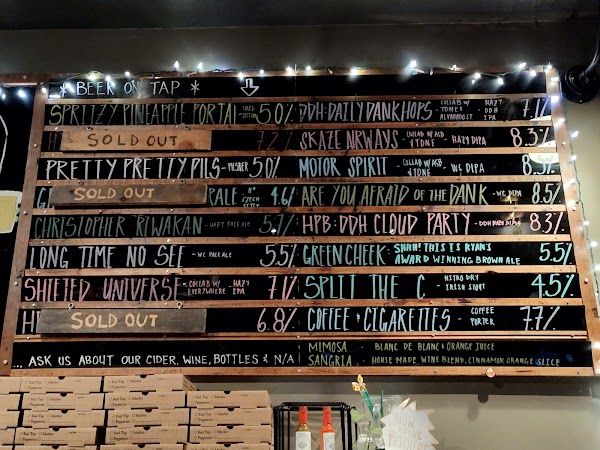 * BEER ON TAP *
SPRITZY PINEAPPLE PORTAL HARD SELTZER 5.0%
SOLD OUT 7.2%
PRETTY PRETTY PILS - PILSNER 5.0%
SOLD OUT PALE CZECH STYLE 4.6%
CHRISTOPHER RIWAKAN - HAZY PALE ALE 5.7%
LONG TIME NO SEE - WC PALE ALE 5.5%
SHIFTED UNIVERSE - COLLAB W/ EVERYWHERE - HAZY IPA 7.1%
SOLD OUT 6.8%
... ASK US ABOUT OUR CIDER, WINE, BOTTLES & N/A
DDH: DAILY DANK HOPS COLLAB W/ ALVARADO ST - HAZY DDH IPA 7.1%
SKAZE AIRWAYS - COLLAB W/ 1 TONE - HAZY DIPA 8.3%
MOTOR SPIRIT - COLLAB W/ - WC DIPA 8.5%
ARE YOU AFRAID OF THE DANK - WC DIPA 8.5%
HPB: DDH CLOUD PARTY - DDH HAZY DIPA 8.3%
GREEN CHEEK: SHHH! THIS IS RYAN'S AWARD WINNING BROWN ALE 5.5%
SPLIT THE C - NITRO DRY IRISH STOUT 4.5%
COFFEE & CIGARETTES - COFFEE PORTER 7.7%
MIMOSA BLANC DE BLANC & ORANGE JUICE
SANGRIA HOUSE MADE WINE BLEND, CINNAMON, ORANGE SLICE